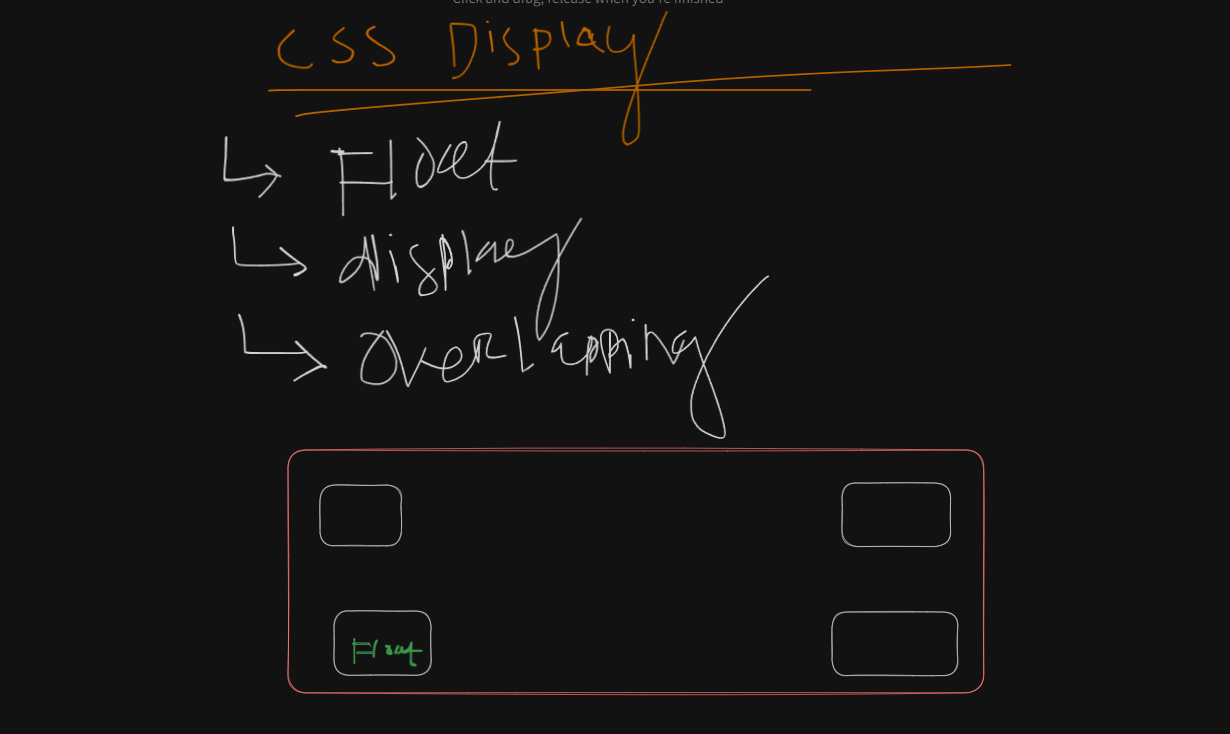 Click and drag, release when you're finished
CSS Display
Float
display
overlapping
Float